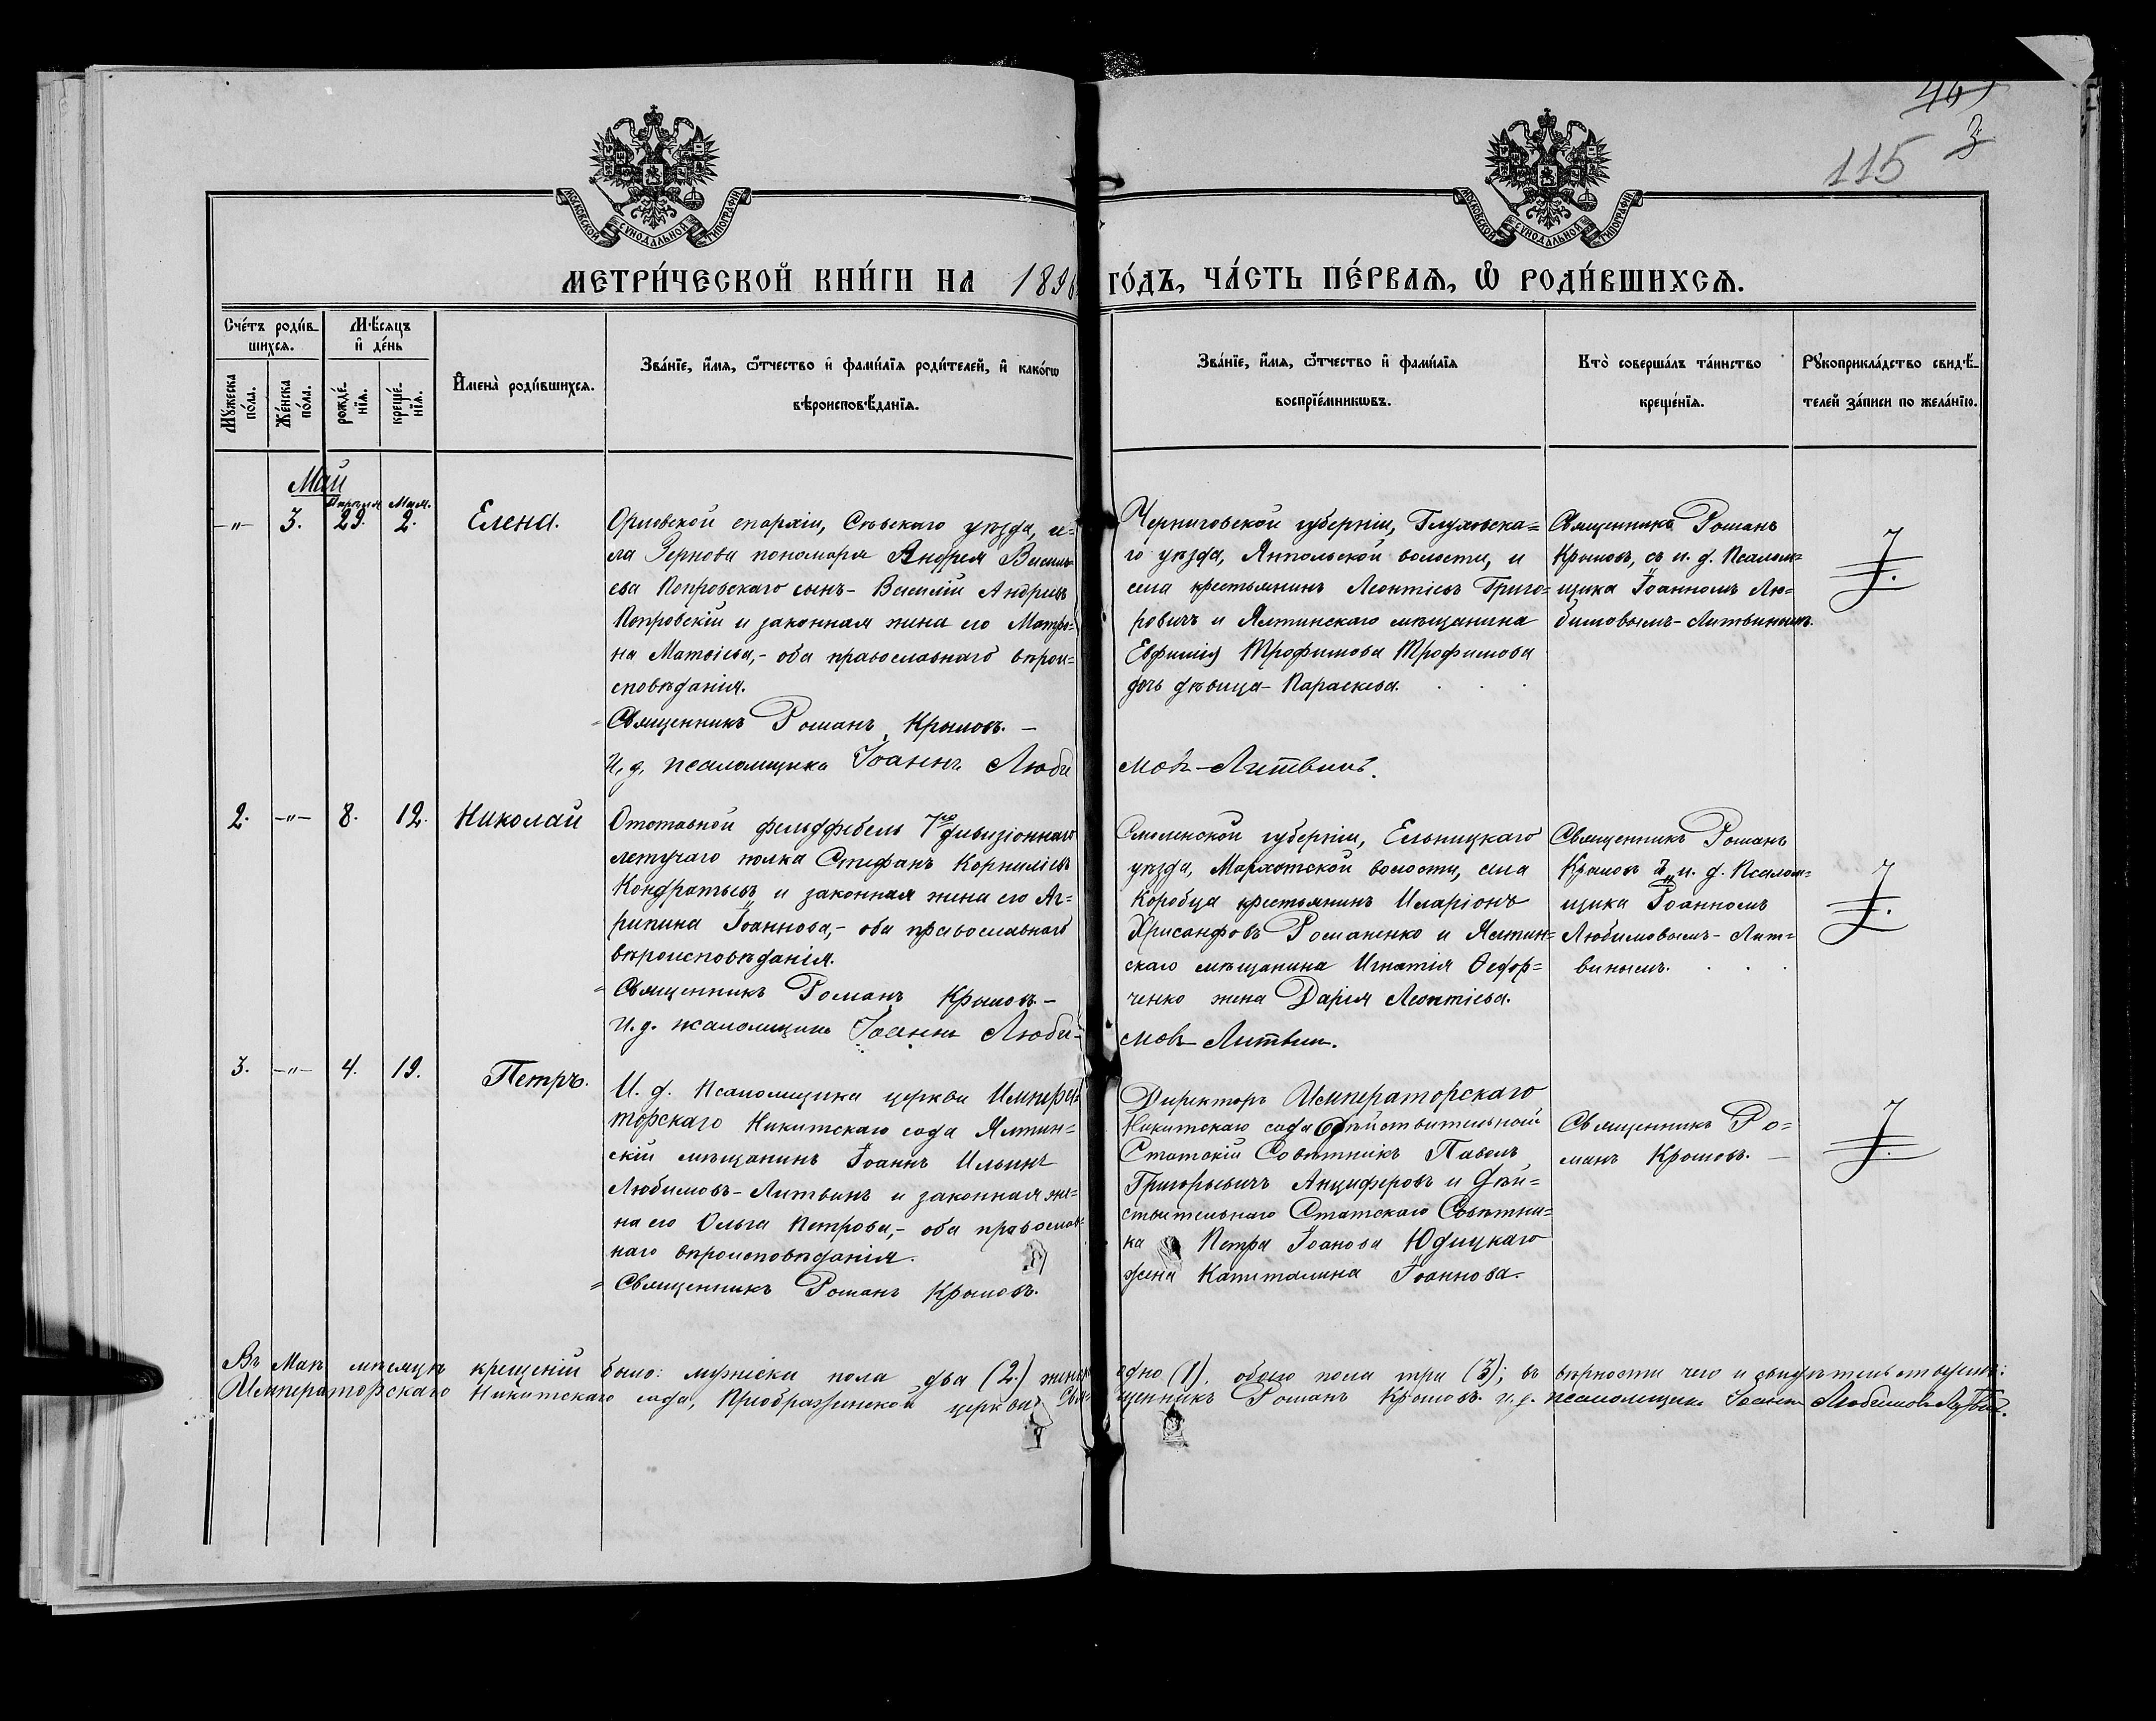 115
3
МОСКОВСКОЙ СѴНОДАЛЬНОЙ ТИПОГРАФІИ
МОСКОВСКОЙ СѴНОДАЛЬНОЙ ТИПОГРАФІИ
МЕТРИ́ЧЕСКОЙ КНИ́ГИ НА 1896 ГО́ДЪ, ЧА́СТЬ ПЕ́РВАѦ, Ѡ҆ РОДИ́ВШИХСѦ.
Сче́тъ роди́в-
шихсѧ.
Мѣ́сѧцъ
и҆ де́нь
Мꙋ́жеска по́ла.
Же́нска по́ла.
рожде́нїѧ.
креще́нїѧ.
И҆мена̀ роди́вшихсѧ.
Зва́нїе, и҆́мѧ, ѻ҆́тчество и҆ фами́лїѧ роди́телей, и҆ како́гѡ
вѣроисповѣ́данїѧ.
Зва́нїе, и҆́мѧ, ѻ҆́тчество и҆ фами́лїѧ
воспрїе́мникѡвъ.
Кто̀ соверша́лъ та́инство
креще́нїѧ.
Рꙋкоприкла́дство свидѣ́-
телей за́писи по жела́нїю.
Май
Апрѣля Мая.
-"- 3. 29. 2. Елена.
Орловской епархіи, Сѣвскаго уѣзда, се-
ла Зернова пономаря Андрея Василь-
ева Попровскаго сынъ - Василій Андреевъ
Попровскій и законная жена его Матро-
на Матвѣева, - оба православнаго вѣрои-
сповѣданія.
Священникъ Романъ Крымовъ. -
И. д. псаломщика Іоаннъ Люби
Черниговской губерніи, Глуховска=
го уѣзда, Янпольской волости, и
села крестьянинъ Леонтіевъ Григо=
ровичъ и Ялтинскаго мѣщанина
Евфимія Трофимова Трофимова
дочь дѣвица - Параскева.
мовъ - Литвинъ.
Священника Романъ
Крымовъ, съ и. д. Псалом=
щика Іоанномъ Лю=
бимовымъ - Литвинымъ.
2. -"- 8. 12. Николай
Отставной фельдфебель 7го дивизіоннаго
летучаго полка Стефанъ Корниліевъ
Кондратьевъ и законная жена его Аг=
рипина Іоаннова, - оба православнаго
вѣроисповѣданія.
Священникъ Романъ Крымовъ -
И. д. псаломщика Іоаннъ Люби-
Смоленской губерніи, Ельницкаго
уѣзда, Мархотской волости, села
Коробца крестьянинъ Иларіонъ
Хрисанфовъ Романенко и Ялтин=
скаго мѣщанина Игнатія Ѳедор=
ченко жена Дарія Леонтіева.
мовъ Литвин.
Священникъ Романъ
Крымовъ и. д. Псалом=
щика Іоанномъ
Любимовымъ - Лит=
винымъ.
3. -"- 4. 19. Петръ.
И. д. Псаломщика церкви Импера-
торскаго Никитскаго сада Ялтин=
скій мѣщанинъ Іоаннъ Ильинъ
Любимовъ - Литвинъ и законная же=
на его Ольга Петрова, - оба православ-
наго вѣроисповѣданія.
Священникъ Романъ Крымовъ.
Директоръ Императорскаго
Никитскаго сада Дѣйствительной
Статскій Совѣтникъ Павелъ
Григорьевичъ Анциферовъ и Дѣй=
ствительнаго Статскаго Совѣтни=
ка Петра Іоанова Юдицкаго
жена Капиталина Іоаннова.
Священникъ Ро=
манъ Крымовъ. -
Въ Маѣ мѣсяцѣ крещеній было: мужеска пола два (2.) женск одно (1), обоего пола три (3); въ вѣрности чего и свидѣтельствуемъ:
Императорскаго Никитскаго сада, Преображенской церкви Свя щенникъ Романъ Крымовъ. и. д. псаломщика Іоаннъ Любимовъ Литвин.